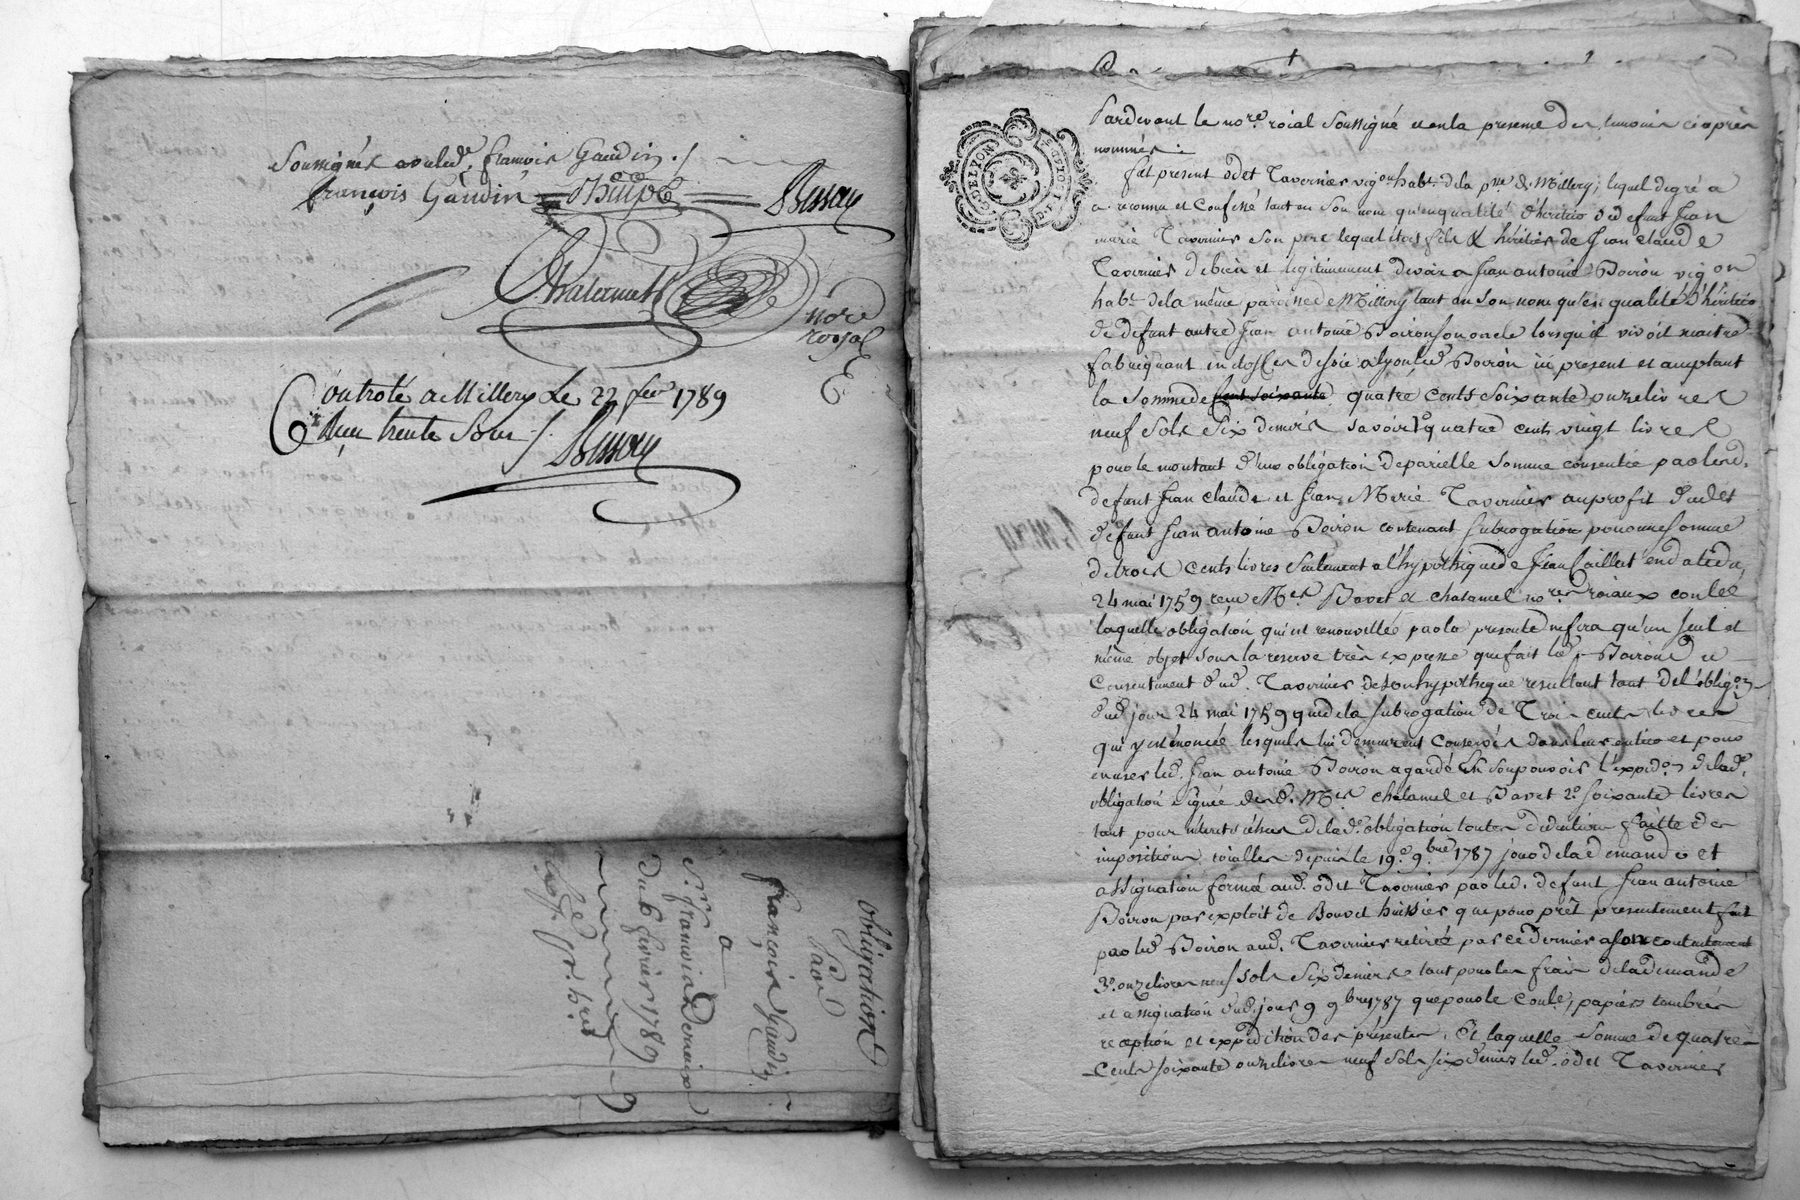 Soussignés avec led. françois Gaudin ./.
françois Gaudin
Bisson
nore
royal
Controlé a Millery Le 22 fevr 1789
Reçu trente Sous ./. Bisson
obligation
Par
françois Gaudin
a
Sr. françois Derrieux
Du 6 fevrier 1789
G. DE LYON
Pardevant le nore. roial Soussigné et en la presence des temoins ciaprès
nommés :
fut present odet Tavernier vigon habt. de la psse de Millery, lequel de gré a
a reconnu et Confessé tant en Son nom qu'en qualité d'héritier de defunt Jean
marie Tavernier Son pere lequel étoit fils & héritier de Jean Claude
Tavernier de bien et legitimement devoir a Jean antoine Boiron vigon
habt. de la même paroisse de Millery tant en Son nom qu'en qualité d'héritier
de defunt autre Jean antoine Boiron son oncle lorsqu'il vivoit maitre
fabriquant en étoffes de soie a lyon led. Boiron ici present et acceptant
la Somme de cent soixante quatre cents Soixante onze livres
neuf sols Six deniers savoir 1o quatre cents vingt livres
pour le montant d'une obligation de pareille somme consentie par lesd.
defunt Jean claude et Jean Marie Tavernier au profit dudit
defunt Jean antoine Boiron contenant Subrogation pour une somme
de trois cents livres seulement a l'hypothique de Jean Caillat en date du
24 mai 1759 reçue Mes. Bavet et chalamel nores roiaux con lée
laquelle obligation qui est renouvellée par la presente ne fera qu'un seul et
même objet sous la reserve très expresse que fait led. Sr Boiron du
Consentement dud. Tavernier de son hypotheque resultant tant de l'obligon
dud. jour 24 mai 1759 que de la subrogation de Trois cents livres
qui y est énoncée lesquels lui demeurent conservés dans leur entier et pour
en user led. Jean antoine Boiron a gardé en son pouvoir l'expedon de lad.
obligation signée desd. Mes chalamel et Bavet 2o. soixante livres
tant pour interets échus de lad. obligation toute deduction faitte des
impositions roialles depuis le 19. 9bre 1787 jour de la demande et
assignation formée aud. odet Tavernier par led. defunt Jean antoine
Boiron par exploit de Bouvet huissier que pour prêt presentement fait
par led. Boiron aud. Tavernier retirée par ce dernier a son contentement
3o. onze livres neuf sols Six deniers tant pour les frais de la demande
et assignation dud. jour 9 9bre 1787 que pour le conle, papiers timbrés
reception et expedition des presentes. Et laquelle Somme de quatre
Cents soixante onze livres neuf Sols six deniers led. odet Tavernier